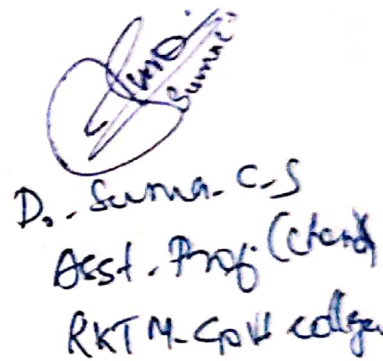 Suma
Suma C
Dr. Suma. C-S
Asst. Prof. (Chem)
RKTM-Govt college